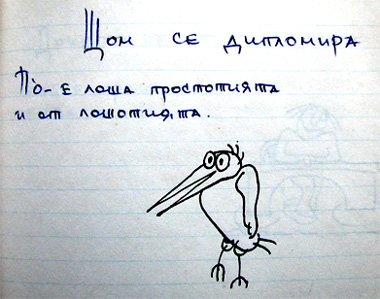 Щом се дипломира
По̀-е лоша простотията
и от лошотията.